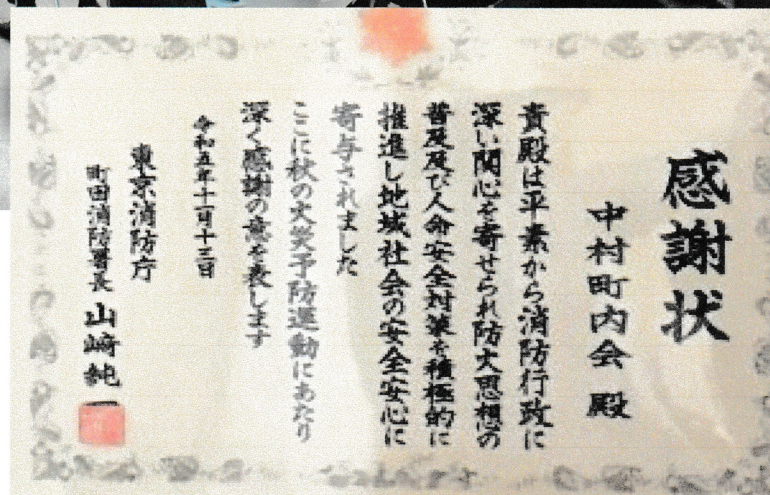 感謝状
中村町内会 殿
貴殿は平素から消防行政に
深い関心を寄せられ防火思想の
普及及び人命安全対策を積極的に
推進し地域社会の安全安心に
寄与されました
ここに秋の火災予防運動にあたり
深く感謝の意を表します
令和五年十一月十三日
東京消防庁
町田消防署長 山崎純一